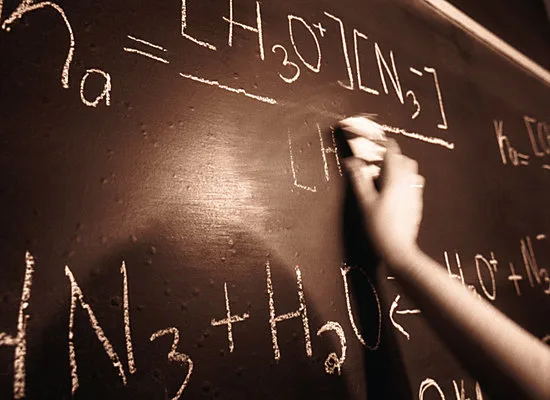 Ka = [H₃O⁺][N₃⁻]
[H
Ka = [
HN₃ + H₂O ← H₃O⁺ + N₃⁻